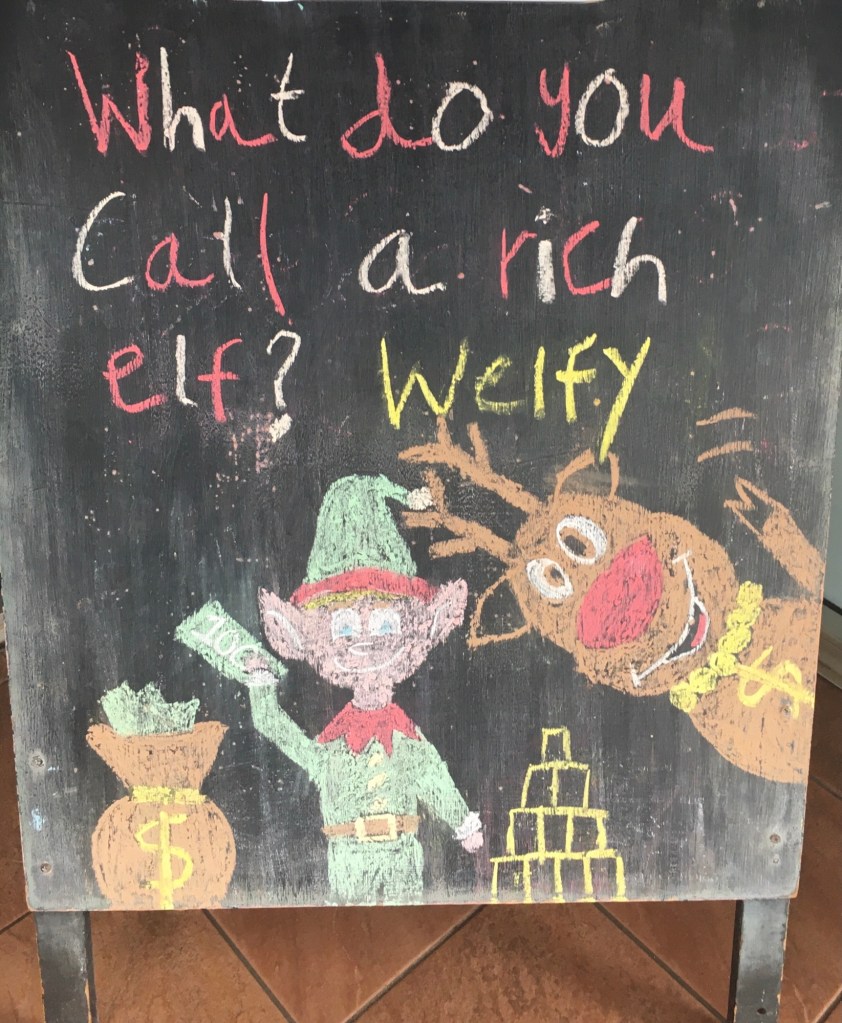 What do you
Call a rich
elf? Welfy
100
$
$